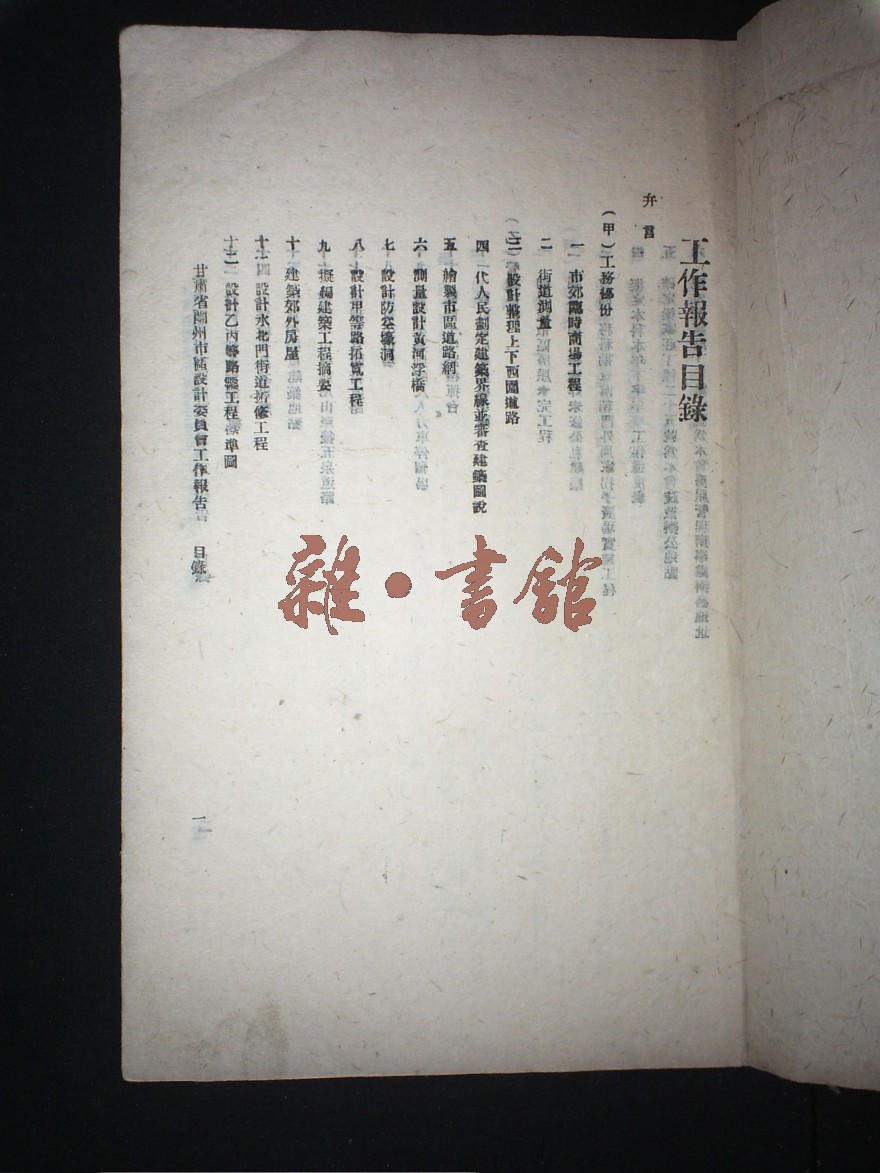 工作報告目錄
弁言
（甲）工務部份
一 市郊臨時商場工程
二 街道測量
三 設計整理上下西園道路
四 代人民劃定建築界綫並審查建築圖說
五 繪製市區道路網
六 測量設計黃河浮橋
七 設計防空壕洞
八 設計甲等路拓寬工程
九 擬編建築工程摘要
十 建築郊外房屋
十一 設計永北門街道拆修工程
十二 設計乙丙等路工程標準圖
甘肅省蘭州市區設計委員會工作報告 目錄
一
雜·書館